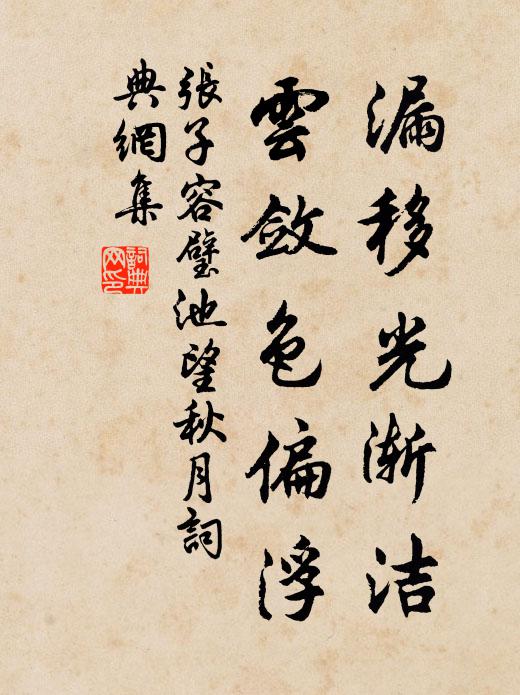 漏移光渐洁
雲斂色偏浮
張子容璧池望秋月詞
典網集
詞典
网印